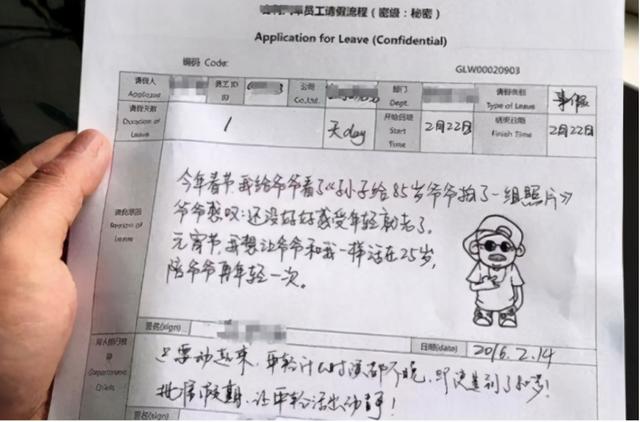 员工请假流程（密级：秘密）
Application for Leave (Confidential)
编码 Code: GLW00020903
请假人 Applicant 员工ID ID 公司 Co.,Ltd. 部门 Dept. 请假类别 Type of Leave 事假
请假天数 Duration of Leave 1 天day 开始日期 Start Time 2月22日 结束日期 Finish Time 2月22日
请假原因 Reason of Leave
今年春节,我给爷爷看了《孙子给85岁爷爷拍了一组照片》
爷爷感叹:还没好好感受年轻就老了。
元宵节,我想让爷爷和我一样活在25岁,
陪爷爷再年轻一次。
签名(sign) 日期(date) 2016.2.14
要动起来,年轻什么时候都不晚,即使到了80岁!
批准假期,让年轻活出动静!
签名(sign)